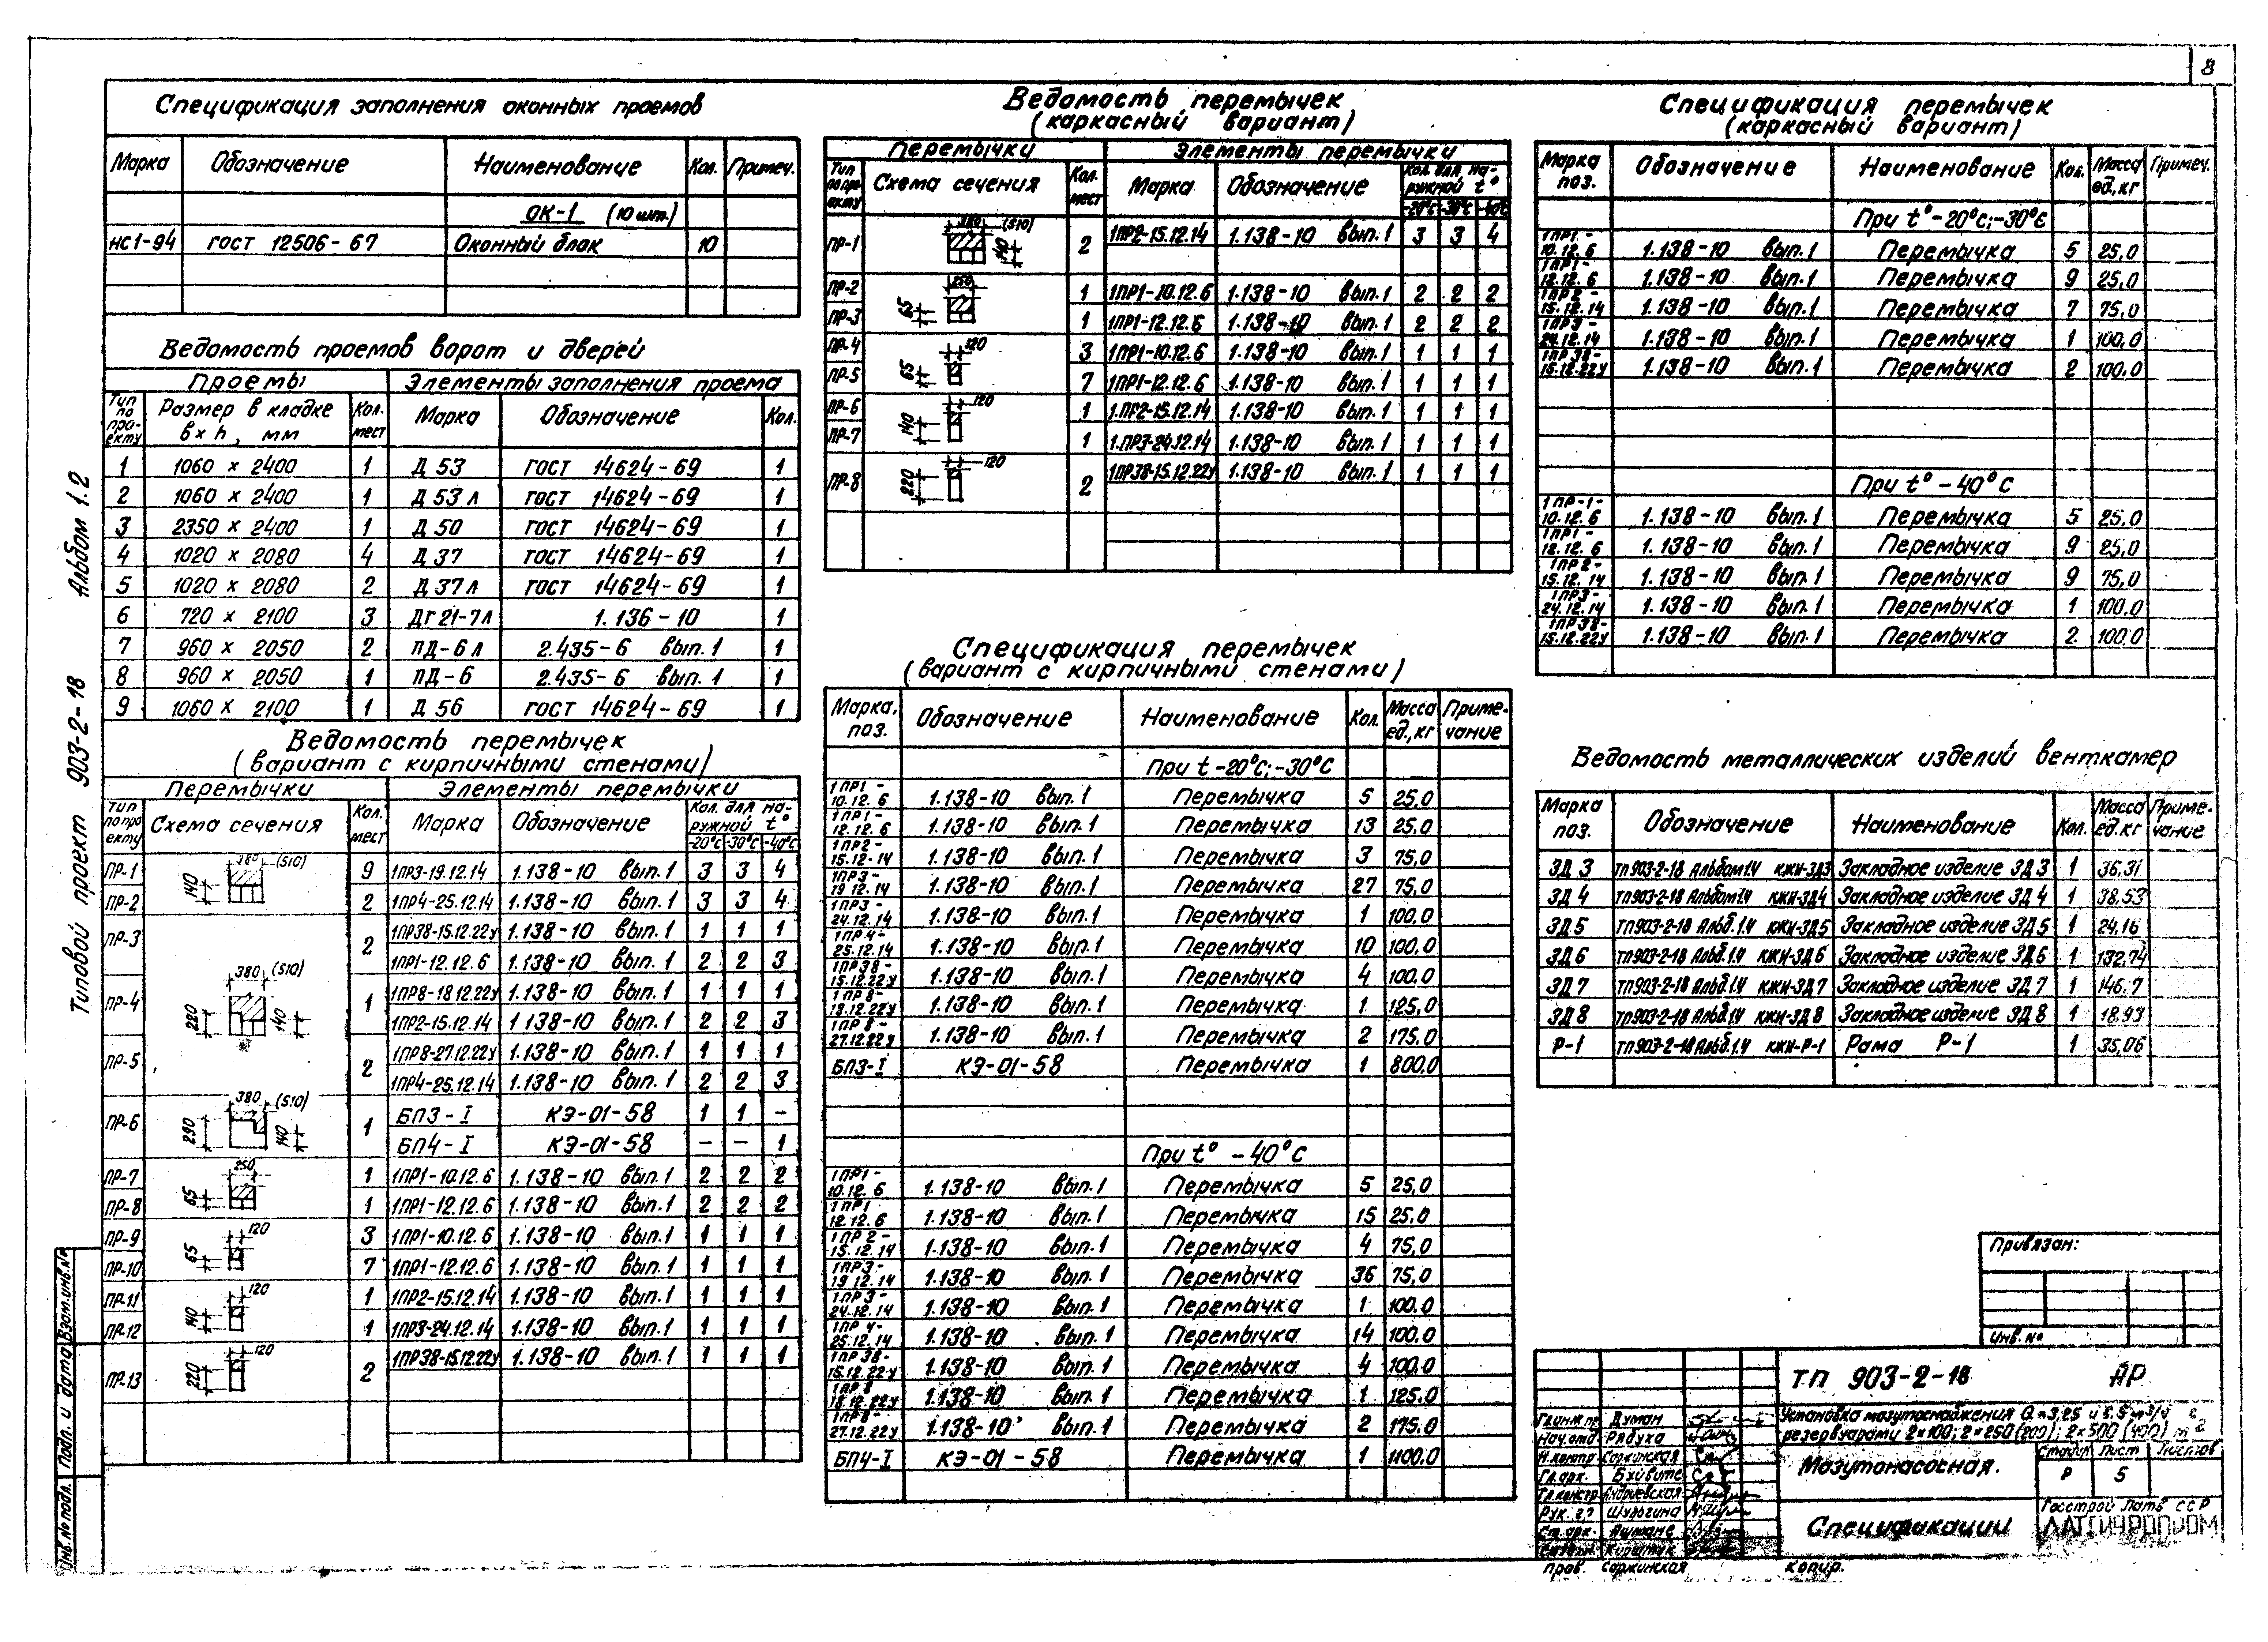 8
Альбом 1.2
Типовой проект 903-2-18
Спецификация заполнения оконных проемов
Марка Обозначение Наименование Кол. Примеч.
ОК-1 (10 шт.)
НС1-94 ГОСТ 12506-67 Оконный блок 10
Ведомость проемов ворот и дверей
Проемы Элементы заполнения проема
Тип по проекту Размер в кладке в х h, мм Кол. мест Марка Обозначение Кол.
1 1060 х 2400 1 Д 53 ГОСТ 14624-69 1
2 1060 х 2400 1 Д 53 л ГОСТ 14624-69 1
3 2350 х 2400 1 Д 50 ГОСТ 14624-69 1
4 1020 х 2080 4 Д 37 ГОСТ 14624-69 1
5 1020 х 2080 2 Д 37 л ГОСТ 14624-69 1
6 720 х 2100 3 ДГ 21-7л 1.136-10 1
7 960 х 2050 2 ПД-6л 2.435-6 вып.1 1
8 960 х 2050 1 ПД-6 2.435-6 вып.1 1
9 1060 х 2100 1 Д 56 ГОСТ 14624-69 1
Ведомость перемычек
(вариант с кирпичными стенами)
Перемычки Элементы перемычки
Тип по проекту Схема сечения Кол. мест Марка Обозначение Кол. для наружной t°
-20°С -30°С -40°С
ПР-1 380 (510) 140 9 1ПР3-19.12.14 1.138-10 вып.1 3 3 4
ПР-2 2 1ПР4-25.12.14 1.138-10 вып.1 3 3 4
ПР-3 2 1ПР38-15.12.22у 1.138-10 вып.1 1 1 1
1ПР1-12.12.6 1.138-10 вып.1 2 2 3
ПР-4 380 (510) 220 140 1 1ПР8-18.12.22у 1.138-10 вып.1 1 1 1
1ПР2-15.12.14 1.138-10 вып.1 2 2 3
ПР-5 2 1ПР8-27.12.22у 1.138-10 вып.1 1 1 1
1ПР4-25.12.14 1.138-10 вып.1 2 2 3
ПР-6 380 (510) 290 140 1 БП3-I КЭ-01-58 1 1 -
БП4-I КЭ-01-58 - - 1
ПР-7 250 65 1 1ПР1-10.12.6 1.138-10 вып.1 2 2 2
ПР-8 1 1ПР1-12.12.6 1.138-10 вып.1 2 2 2
ПР-9 120 65 3 1ПР1-10.12.6 1.138-10 вып.1 1 1 1
ПР-10 7 1ПР1-12.12.6 1.138-10 вып.1 1 1 1
ПР-11 120 140 1 1ПР2-15.12.14 1.138-10 вып.1 1 1 1
ПР-12 1 1ПР3-24.12.14 1.138-10 вып.1 1 1 1
ПР-13 120 220 2 1ПР38-15.12.22у 1.138-10 вып.1 1 1 1
Ведомость перемычек
(каркасный вариант)
Перемычки Элементы перемычки
Тип по проекту Схема сечения Кол. мест Марка Обозначение Кол. для наружной t°
-20°С -30°С -40°С
ПР-1 380 (510) 140 2 1ПР2-15.12.14 1.138-10 вып.1 3 3 4
ПР-2 250 65 1 1ПР1-10.12.6 1.138-10 вып.1 2 2 2
ПР-3 1 1ПР1-12.12.6 1.138-10 вып.1 2 2 2
ПР-4 120 65 3 1ПР1-10.12.6 1.138-10 вып.1 1 1 1
ПР-5 7 1ПР1-12.12.6 1.138-10 вып.1 1 1 1
ПР-6 120 140 1 1.ПР2-15.12.14 1.138-10 вып.1 1 1 1
ПР-7 1 1.ПР3-24.12.14 1.138-10 вып.1 1 1 1
ПР-8 120 220 2 1ПР38-15.12.22у 1.138-10 вып.1 1 1 1
Спецификация перемычек
(вариант с кирпичными стенами)
Марка, поз. Обозначение Наименование Кол. Масса ед., кг Примечание
При t -20°С; -30°С
1ПР1-10.12.6 1.138-10 вып.1 Перемычка 5 25,0
1ПР1-12.12.6 1.138-10 вып.1 Перемычка 13 25,0
1ПР2-15.12-14 1.138-10 вып.1 Перемычка 3 75,0
1ПР3-19.12.14 1.138-10 вып.1 Перемычка 27 75,0
1ПР3-24.12.14 1.138-10 вып.1 Перемычка 1 100.0
1ПР.4-25.12.14 1.138-10 вып.1 Перемычка 10 100.0
1ПР38-15.12.22у 1.138-10 вып.1 Перемычка 4 100.0
1ПР8-18.12.22у 1.138-10 вып.1 Перемычка 1 125,0
1ПР8-27.12.22у 1.138-10 вып.1 Перемычка 2 175.0
БП3-I КЭ-01-58 Перемычка 1 800,0
При t° -40°С
1ПР1-10.12.6 1.138-10 вып.1 Перемычка 5 25,0
1ПР1 12.12.6 1.138-10 вып.1 Перемычка 15 25.0
1ПР2-15.12.14 1.138-10 вып.1 Перемычка 4 75,0
1ПР3-19.12.14 1.138-10 вып.1 Перемычка 36 75,0
1ПР3-24.12.14 1.138-10 вып.1 Перемычка 1 100.0
1ПР4-25.12.14 1.138-10 вып.1 Перемычка 14 100.0
1ПР38-15.12.22у 1.138-10 вып.1 Перемычка 4 100.0
1ПР8 18.12.22у 1.138-10 вып.1 Перемычка 1 125.0
1ПР8-27.12.22у 1.138-10 вып.1 Перемычка 2 175.0
БП4-I КЭ-01-58 Перемычка 1 1100.0
Спецификация перемычек
(каркасный вариант)
Марка поз. Обозначение Наименование Кол. Масса ед., кг Примеч.
При t° -20°С; -30°С
1ПР1-10.12.6 1.138-10 вып.1 Перемычка 5 25,0
1ПР1-12.12.6 1.138-10 вып.1 Перемычка 9 25,0
1ПР2-15.12.14 1.138-10 вып.1 Перемычка 7 75,0
1ПР3-24.12.14 1.138-10 вып.1 Перемычка 1 100,0
1ПР38-15.12.22у 1.138-10 вып.1 Перемычка 2 100.0
При t° -40°С
1ПР-1-10.12.6 1.138-10 вып.1 Перемычка 5 25,0
1ПР1-12.12.6 1.138-10 вып.1 Перемычка 9 25,0
1ПР2-15.12.14 1.138-10 вып.1 Перемычка 9 75,0
1ПР3-24.12.14 1.138-10 вып.1 Перемычка 1 100.0
1ПР38-15.12.22у 1.138-10 вып.1 Перемычка 2 100.0
Ведомость металлических изделий венткамер
Марка поз. Обозначение Наименование Кол. Масса ед. кг Примечание
ЗД 3 ТП903-2-18 Альбом1.4 КЖИ-ЗД3 Закладное изделие ЗД 3 1 36,31
ЗД 4 ТП903-2-18 Альбом1.4 КЖИ-ЗД4 Закладное изделие ЗД 4 1 38.53
ЗД 5 ТП903-2-18 Альб.1.4 КЖИ-ЗД5 Закладное изделие ЗД 5 1 24,16
ЗД 6 ТП903-2-18 Альб.1.4 КЖИ-ЗД6 Закладное изделие ЗД 6 1 132,74
ЗД 7 ТП903-2-18 Альб.1.4 КЖИ-ЗД7 Закладное изделие ЗД 7 1 146.7
ЗД 8 ТП903-2-18 Альб.1.4 КЖИ-ЗД8 Закладное изделие ЗД 8 1 18.93
Р-1 ТП903-2-18 Альб.1.4 КЖИ-Р-1 Рама Р-1 1 35,06
Привязан:
Инв. №
ТП 903-2-18 АР
Установка мазутоснабжения Q=3,25 и 6.5 м³/ч с
резервуарами 2×100; 2×250 (200); 2×500 (400) м³
Мазутонасосная.
Стадия Лист Листов
Р 5
Спецификации
Госстрой Латв ССР
ЛАТГИПРОПРОМ
Гл.инж.пр. Думан
Нач.отд Рябуха
Н.контр Соркинская
Гл.арх.
Гл.констр Андриевская
Рук. гр Шульгина
Ст.арх.
Пров. Соркинская
Копир.
Инв. № подл. Подп. и дата Взам.инв.№